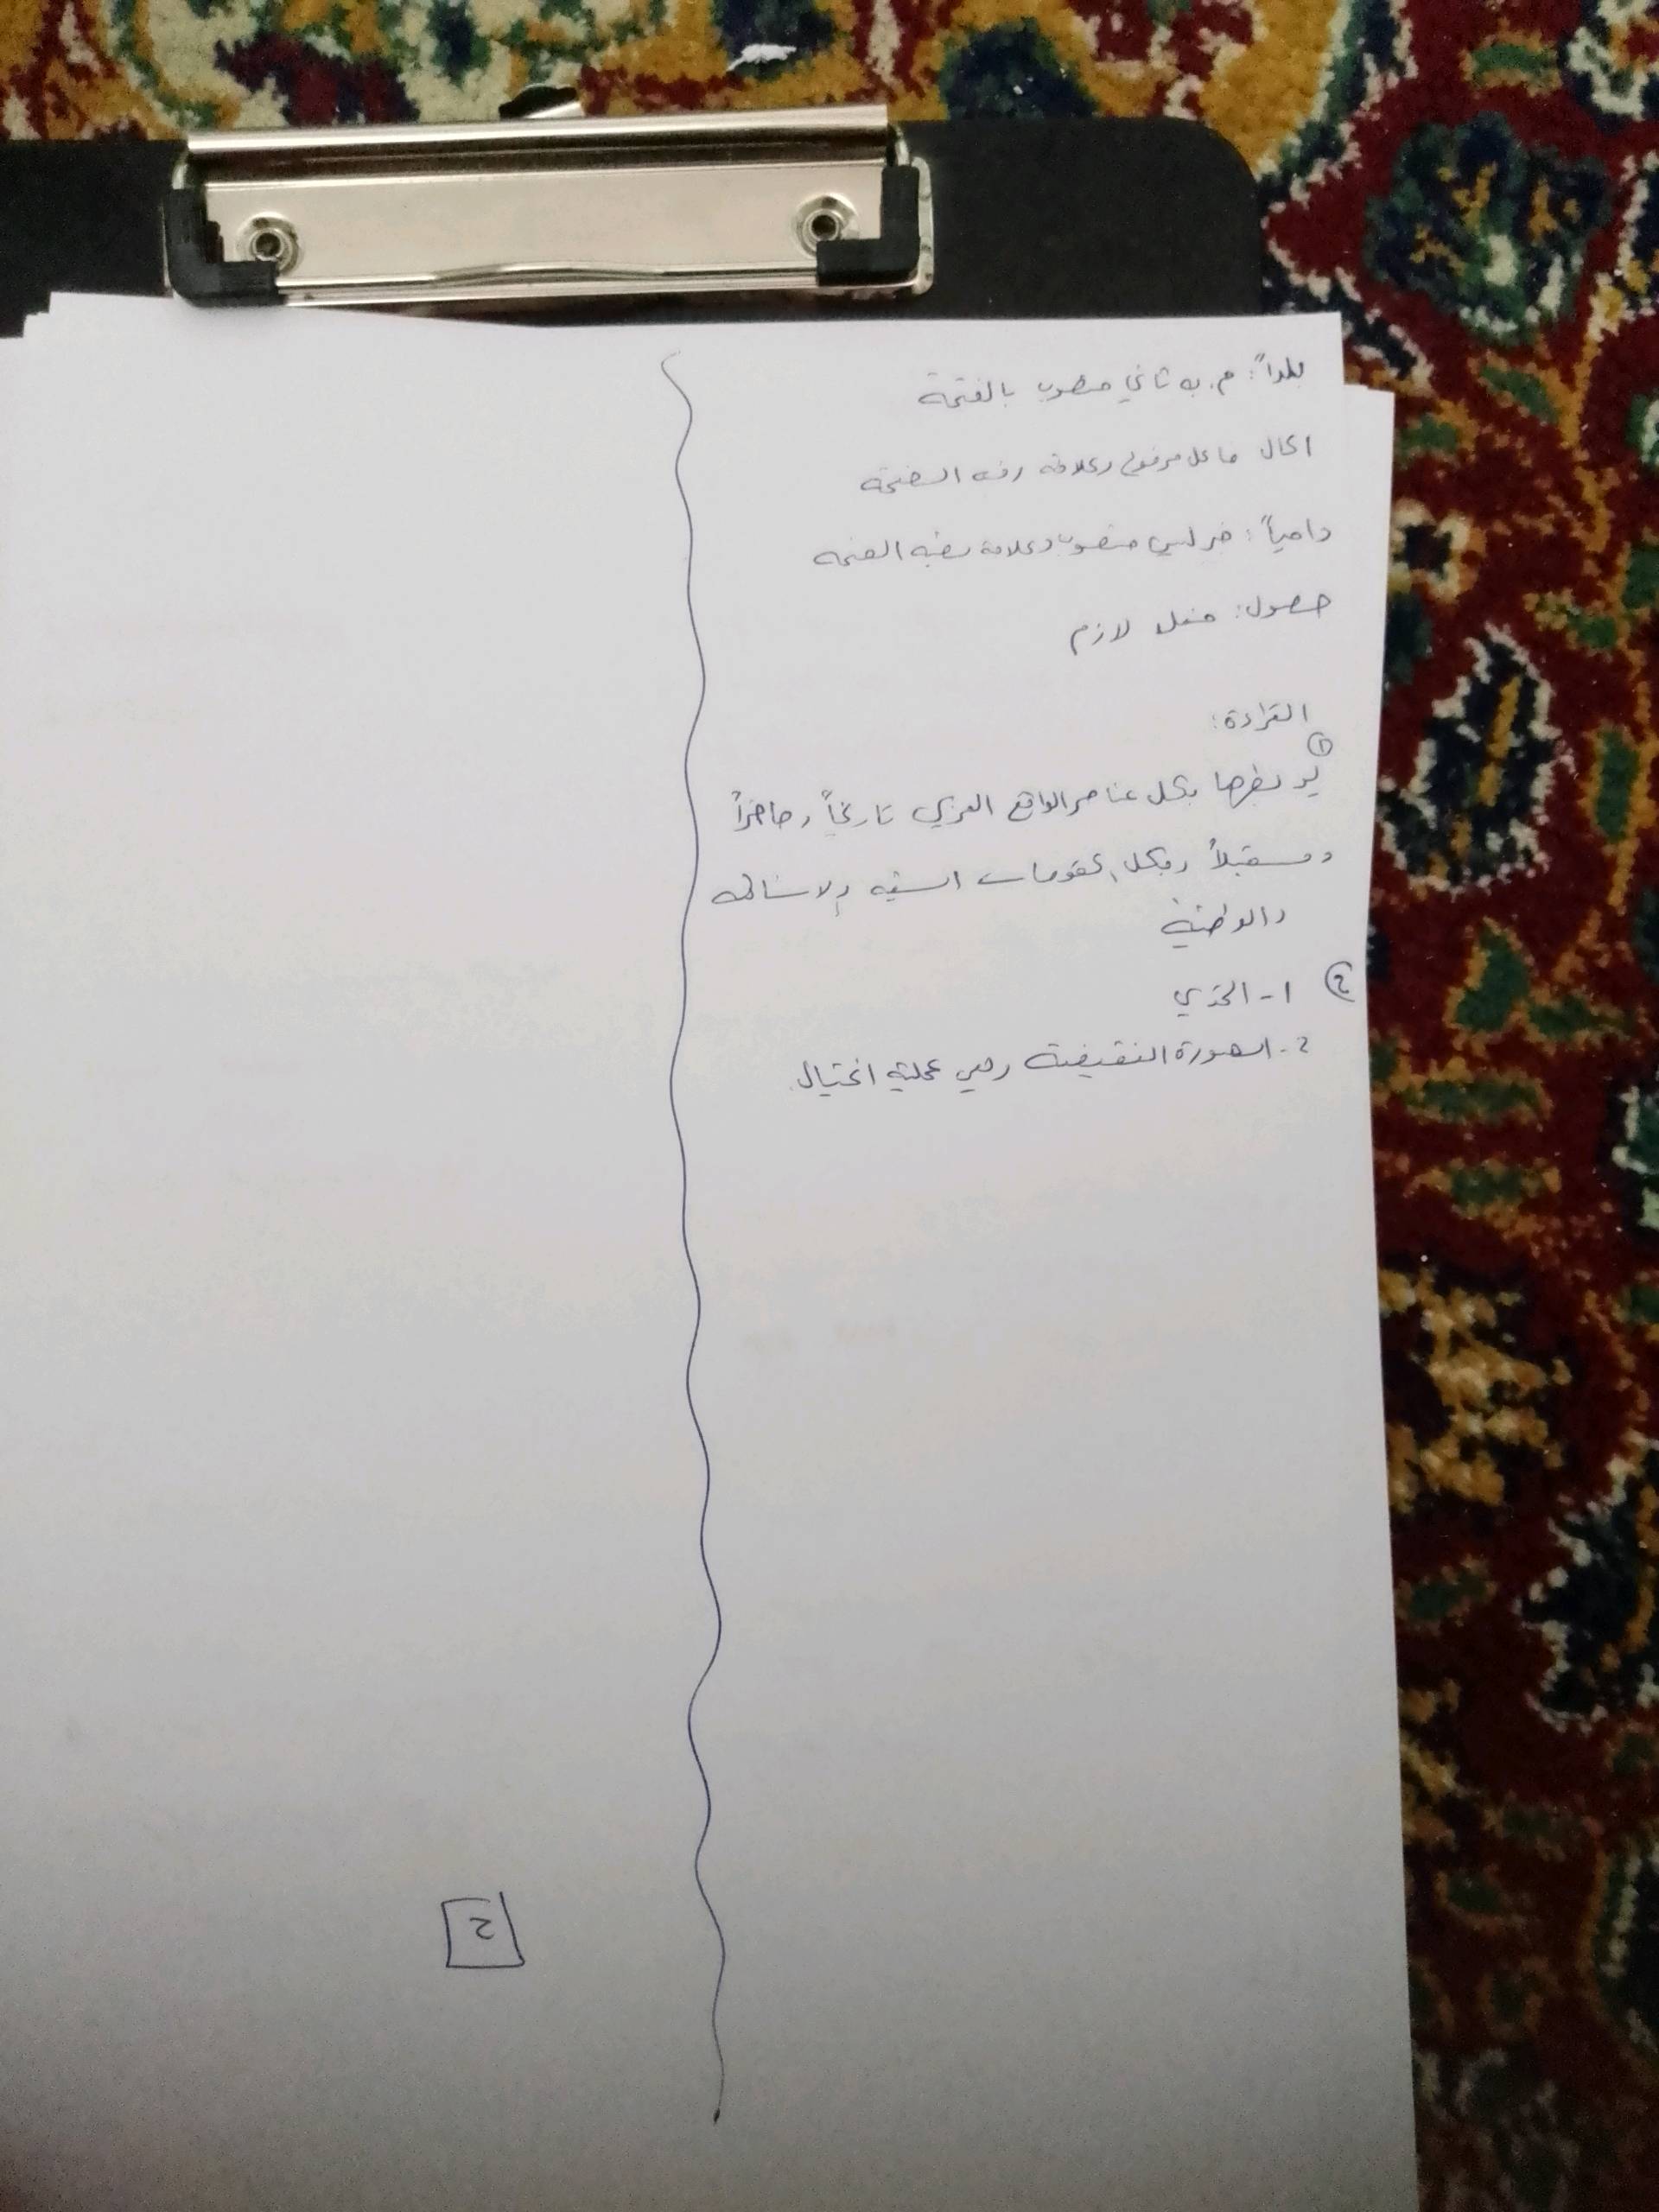 بلداً: م. به ثاني منصوب بالفتحة
الحال فاعل مرفوع وعلامة رفعه الضمة
دامياً: خبر ليس منصوب وعلامة نصبه الفتحة
حصول: فعل لازم
القراءة:
①
بكل عناصر الواقع العربي تاريخاً وحاضراً
ومستقبلاً وبكل المقومات والإنسانية
والوطنية
② ١- التحدي
٢- الصورة النقيضة وهي عملية اغتيال.
٢